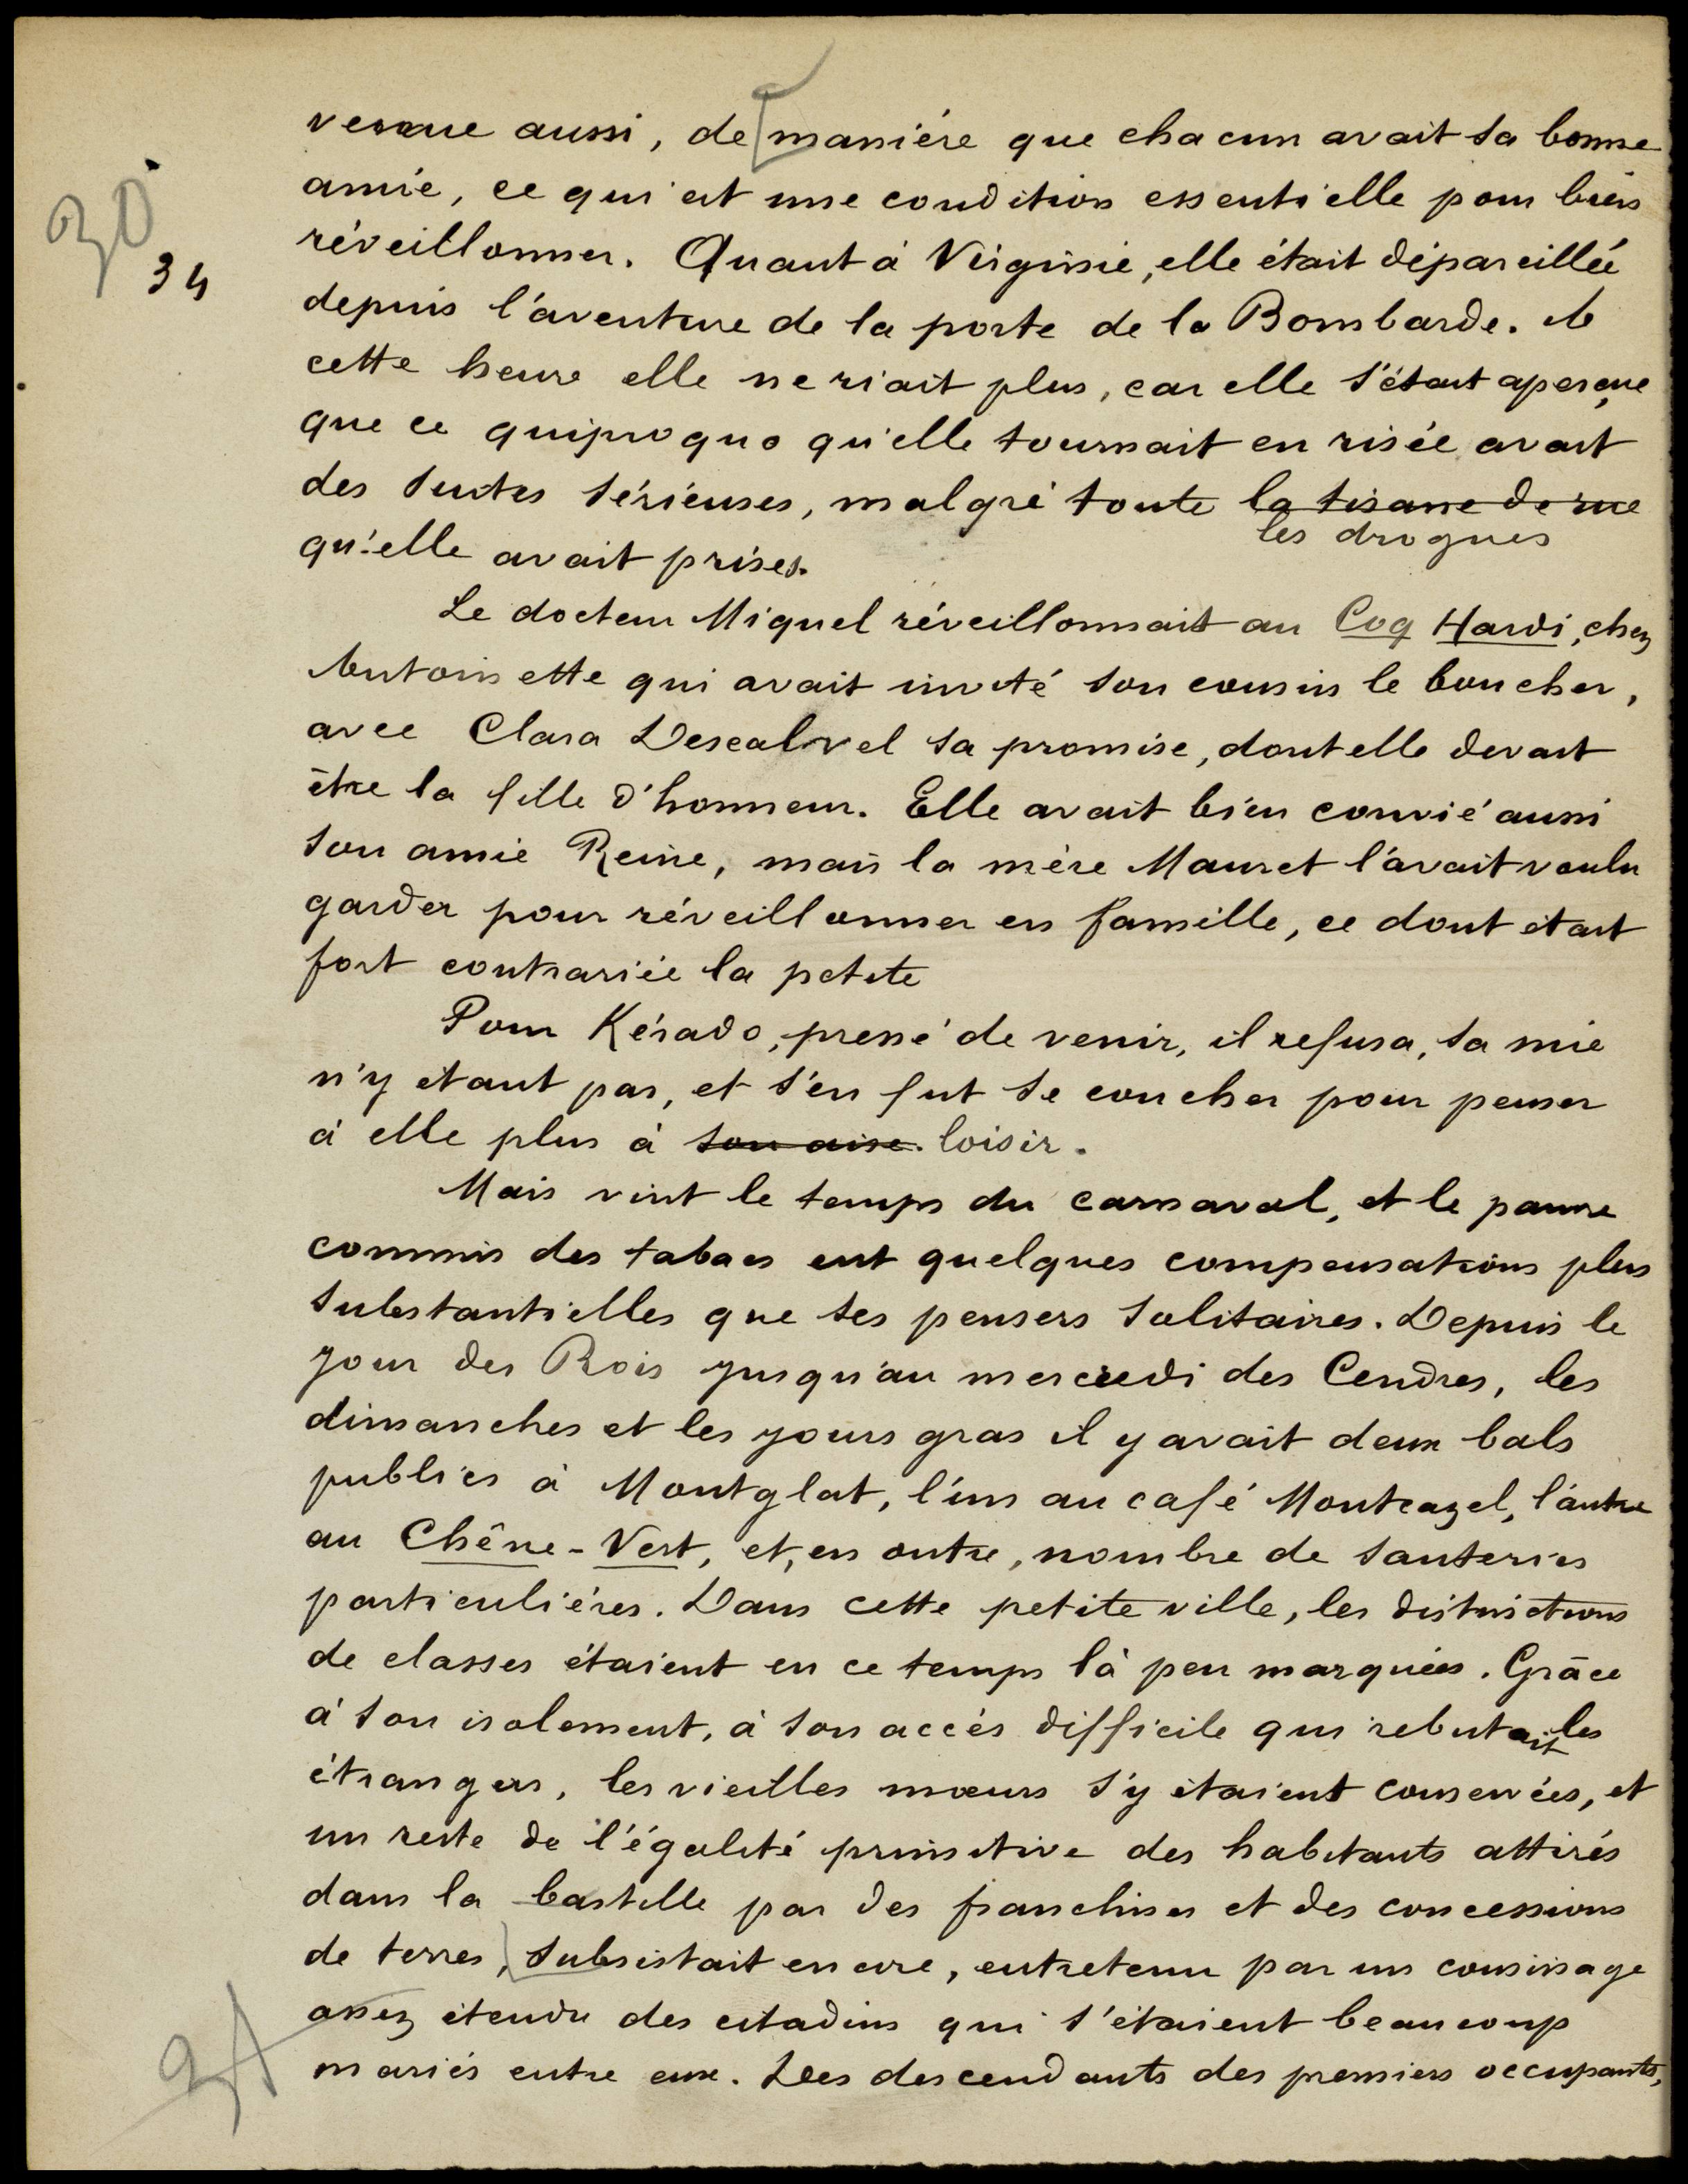 venue aussi, de manière que chacun avait sa bonne
amie, ce qui est une condition essentielle pour bien
réveillonner. Quant à Virginie, elle était dépareillée
depuis l'aventure de la porte de la Bombarde. A
cette heure elle ne riait plus, car elle s'était aperçue
que ce quiproquo qu'elle tournait en risée avait
des suites sérieuses, malgré toute la tisane de rue
les drogues
qu'elle avait prises.
Le docteur Miquel réveillonnait au Coq Hardi, chez
Antoinette qui avait invité son cousin le boucher,
avec Clara Descalvel sa promise, dont elle devait
être la fille d'honneur. Elle avait bien convié aussi
son amie Reine, mais la mère Mauret l'avait voulu
garder pour réveillonner en famille, ce dont était
fort contrariée la petite
Pour Kérado, pressé de venir, il refusa, sa mie
n'y étant pas, et s'en fut se coucher pour penser
à elle plus à son aise. loisir.
Mais vint le temps du carnaval, et le pauvre
commis des tabacs eut quelques compensations plus
substantielles que ses pensers solitaires. Depuis le
jour des Rois jusqu'au mercredi des Cendres, les
dimanches et les jours gras il y avait deux bals
publics à Montglat, l'un au café Montcazel, l'autre
au Chêne-Vert, et, en outre, nombre de sauteries
particulières. Dans cette petite ville, les distinctions
de classes étaient en ce temps là peu marquées. Grâce
à son isolement, à son accès difficile qui rebutait les
étrangers, les vieilles mœurs s'y étaient conservées, et
un reste de l'égalité primitive des habitants attirés
dans la bastille par des franchises et des concessions
de terres, subsistait encore, entretenu par un cousinage
assez étendu des citadins qui s'étaient beaucoup
mariés entre eux. Les descendants des premiers occupants,
30
34